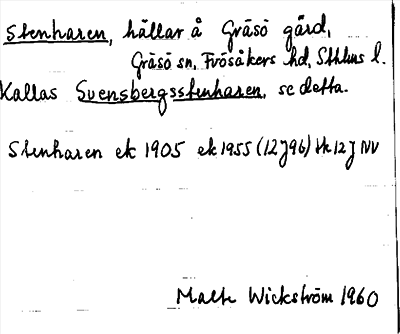 Stenharen, hällar å Gräsö gård,
Gräsö sn, Frösåkers hd, Sthlms l.
Kallas Svensbergsstenharen, se detta.
Stenharen ek 1905 ek 1955 (12J9b) tk 12J NV
Malte Wickström 1960